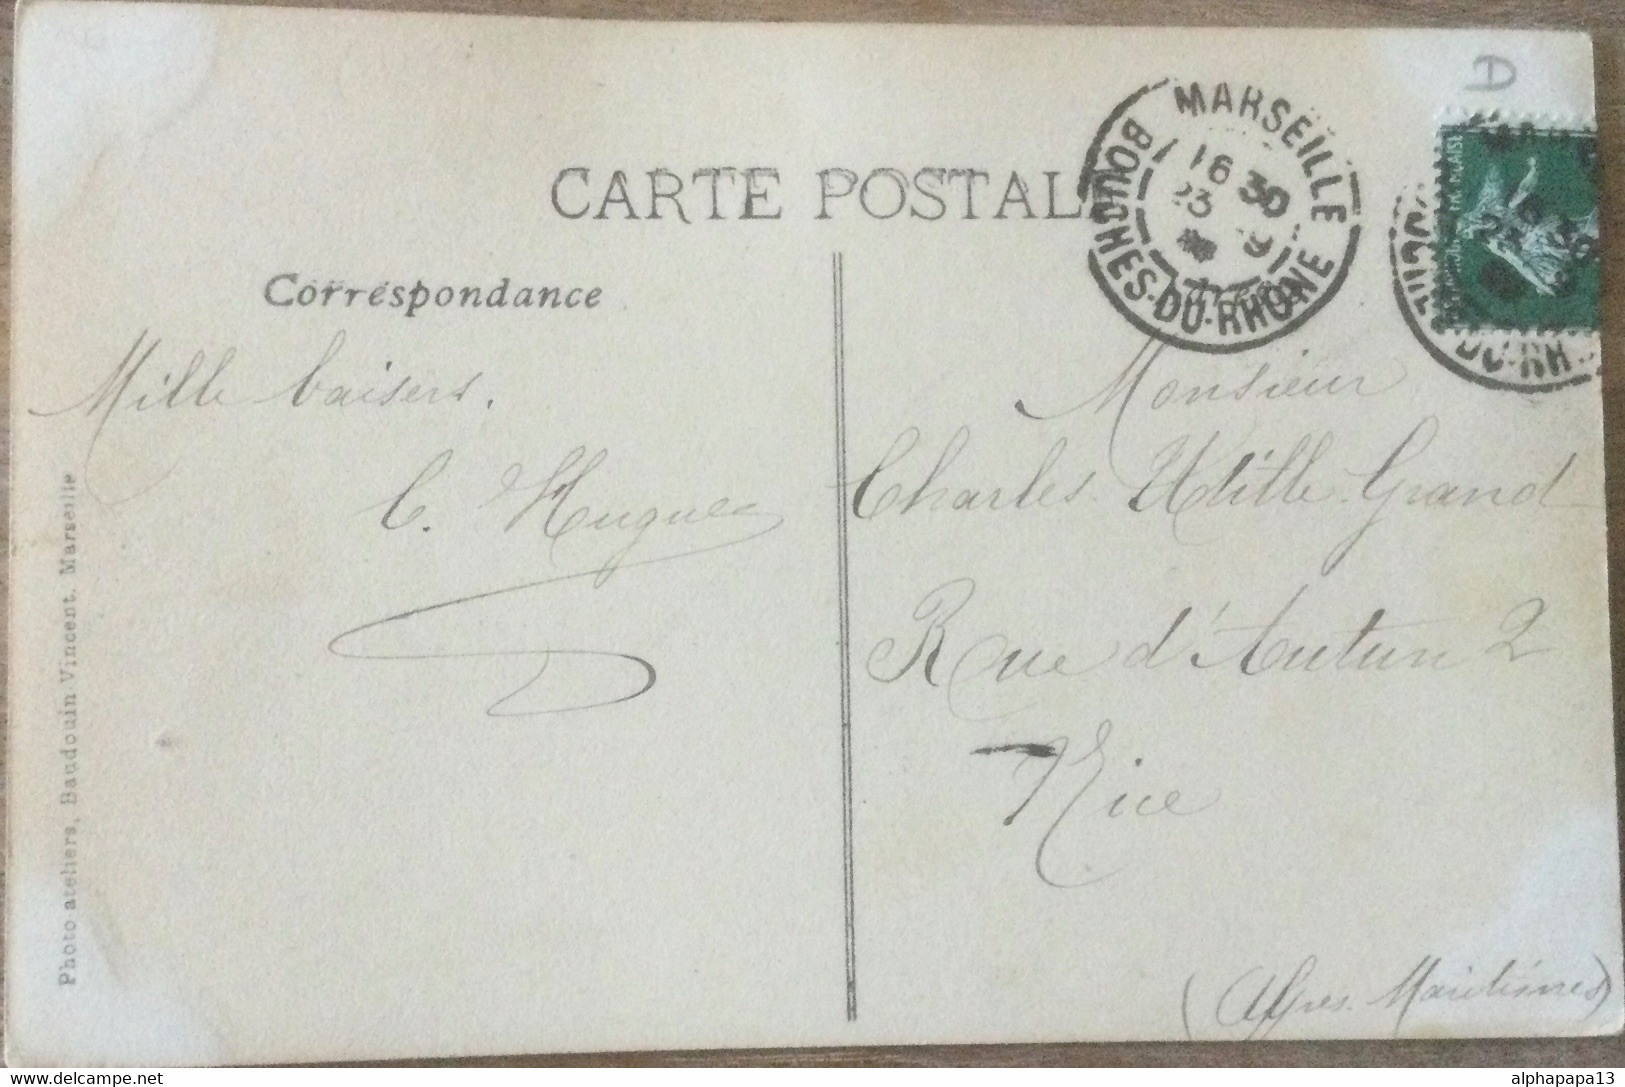 CARTE POSTALE
MARSEILLE
16 30
23 9
BOUCHES-DU-RHONE
Correspondance
Mille baisers.
C. Hugues
Monsieur
Charles Utille Grand
Rue d'Autun 2
Nice
(Alpes Maritimes)
Photo ateliers, Baudouin Vincent, Marseille
DU-RH
www.delcampe.net
alphapapa13